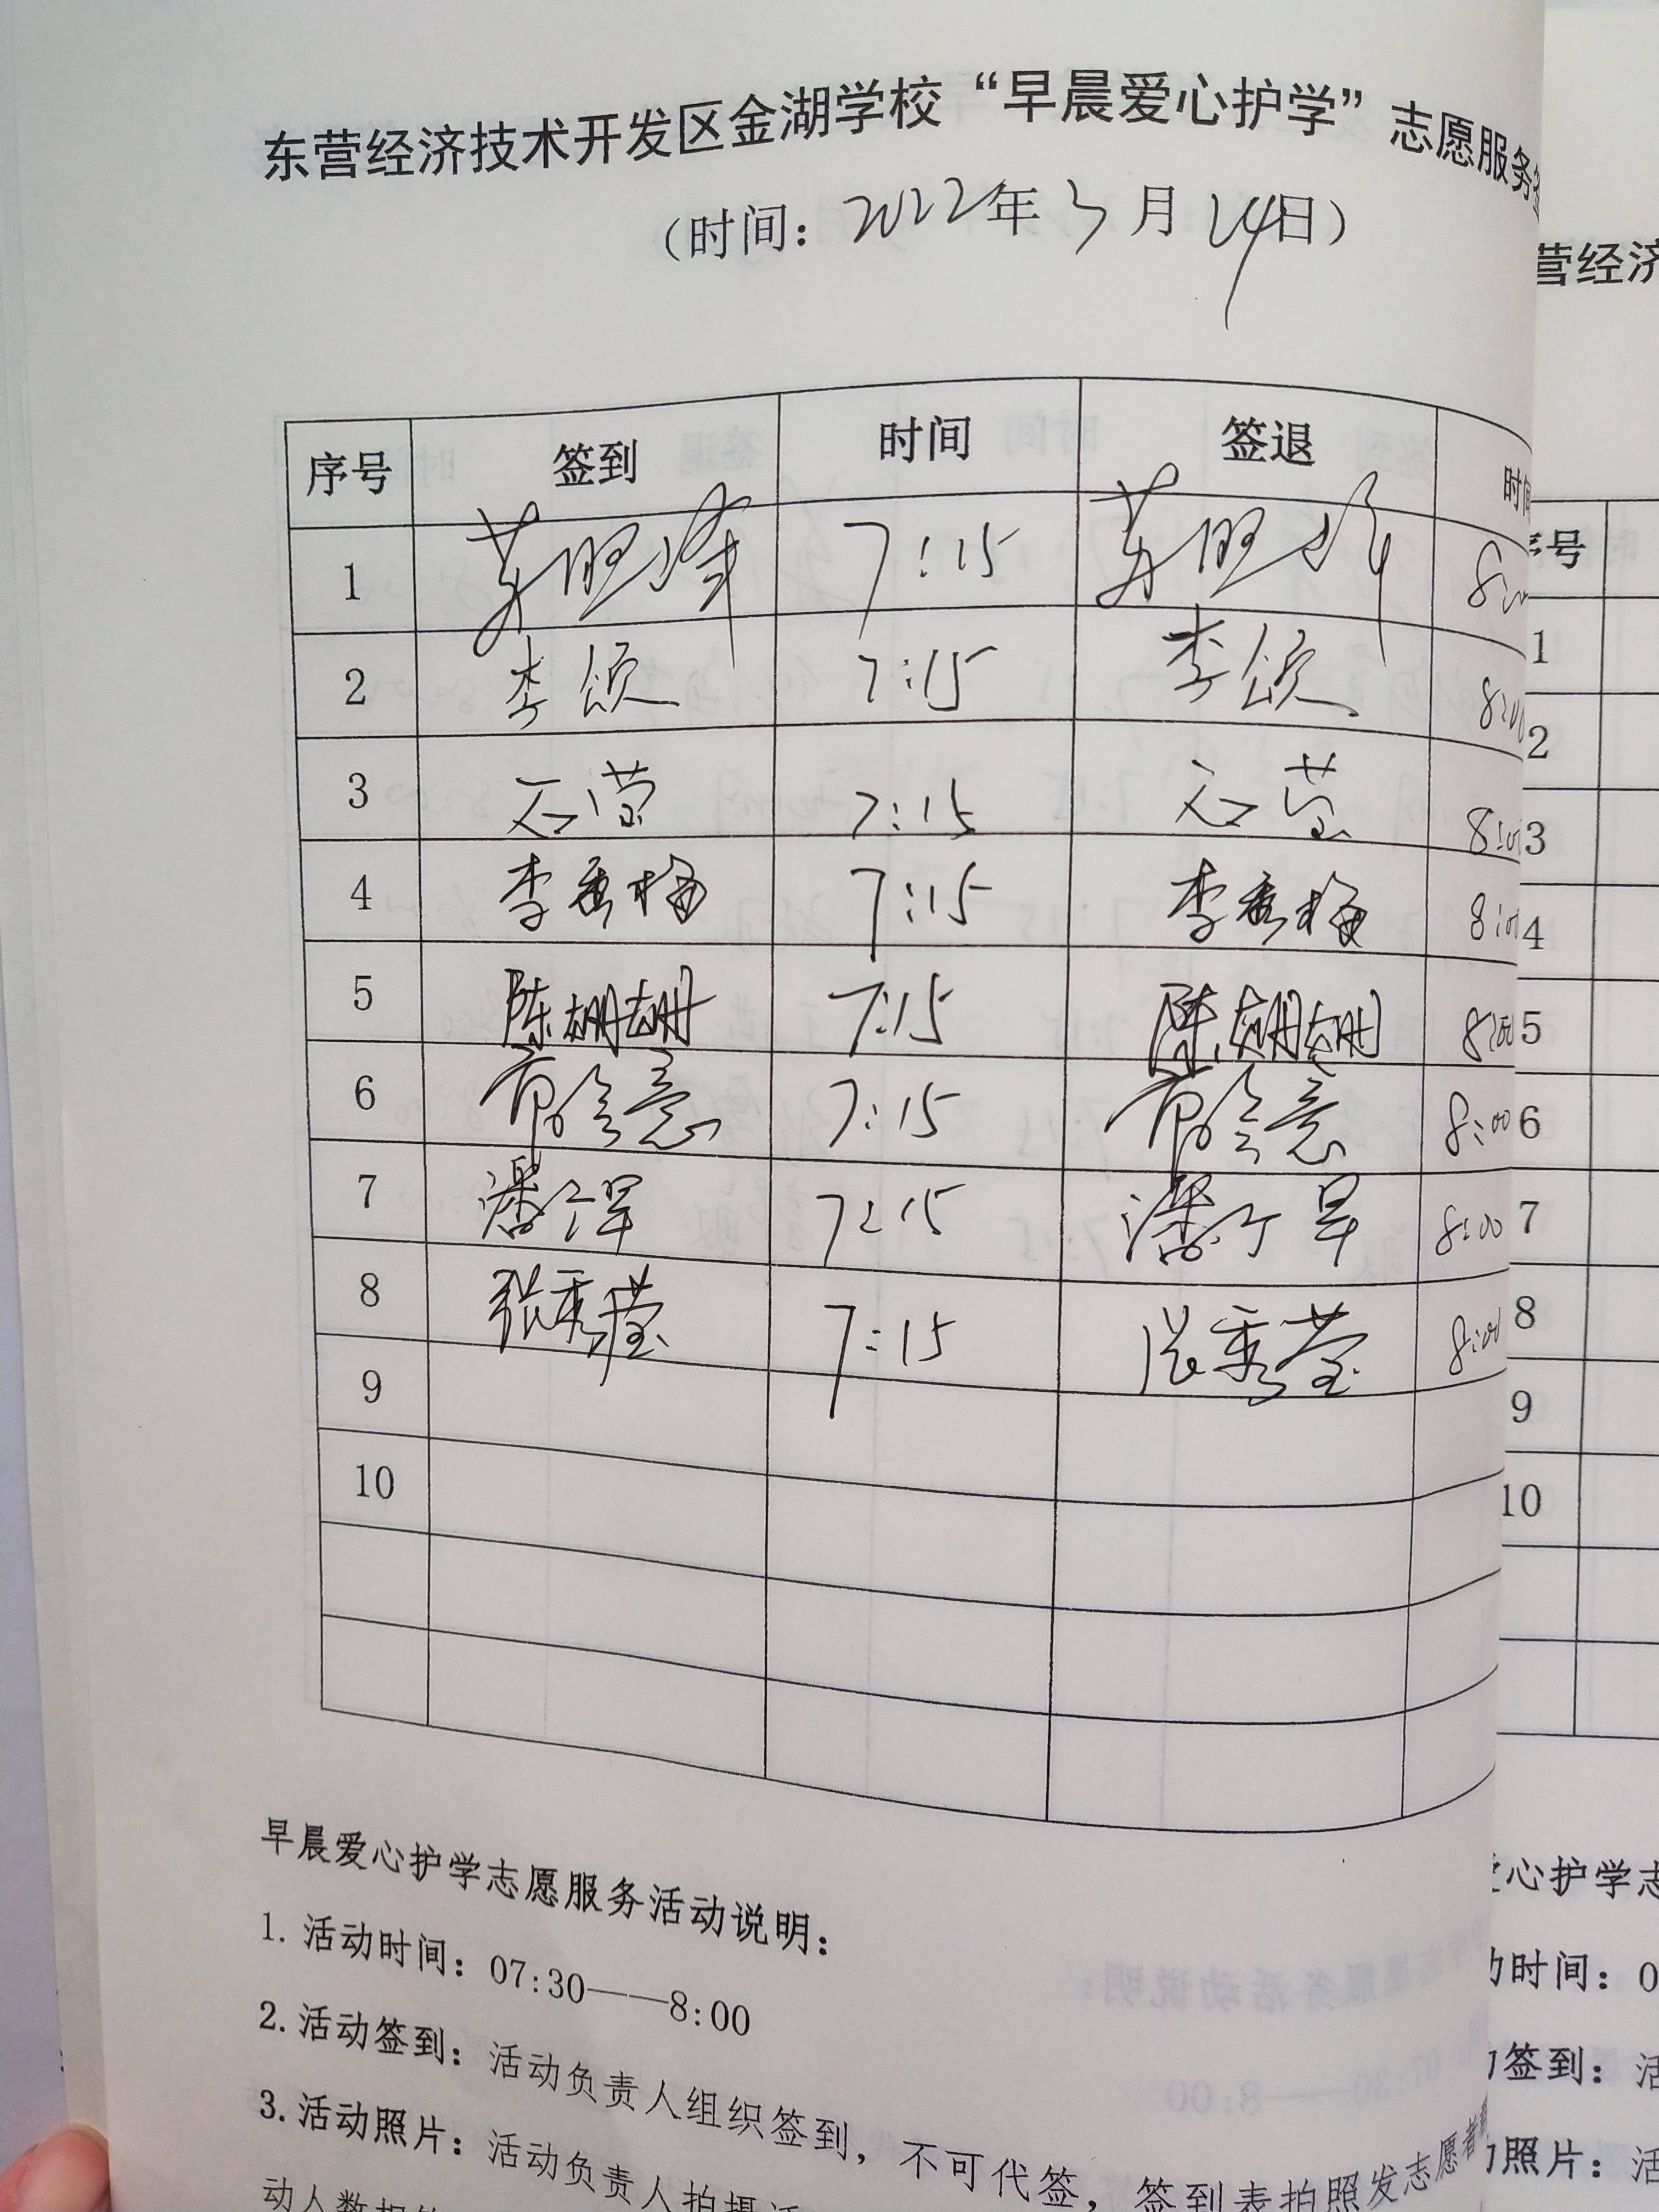 东营经济技术开发区金湖学校“早晨爱心护学”志愿服务签
(时间: 2022年3月24日)
序号 签到 时间 签退 时间
1 7:15
2 李颂 7:15 李颂
3 石莹 7:15 石莹
4 李秀梅 7:15 李秀梅 8:00
5 陈姗姗 7:15 陈姗姗 8:00
6 7:15 8:00
7 7:15 8:00
8 张秀莹 7:15 张秀莹 8:00
9
10
早晨爱心护学志愿服务活动说明:
1. 活动时间: 07:30——8:00
2. 活动签到: 活动负责人组织签到, 不可代签, 签到表拍照发志愿者
3. 活动照片: 活动负责人拍摄活
动人数据
营经济
序号
1
2
3
4
5
6
7
8
9
10
爱心护学志
动时间: 0
动签到: 活
动照片: 活